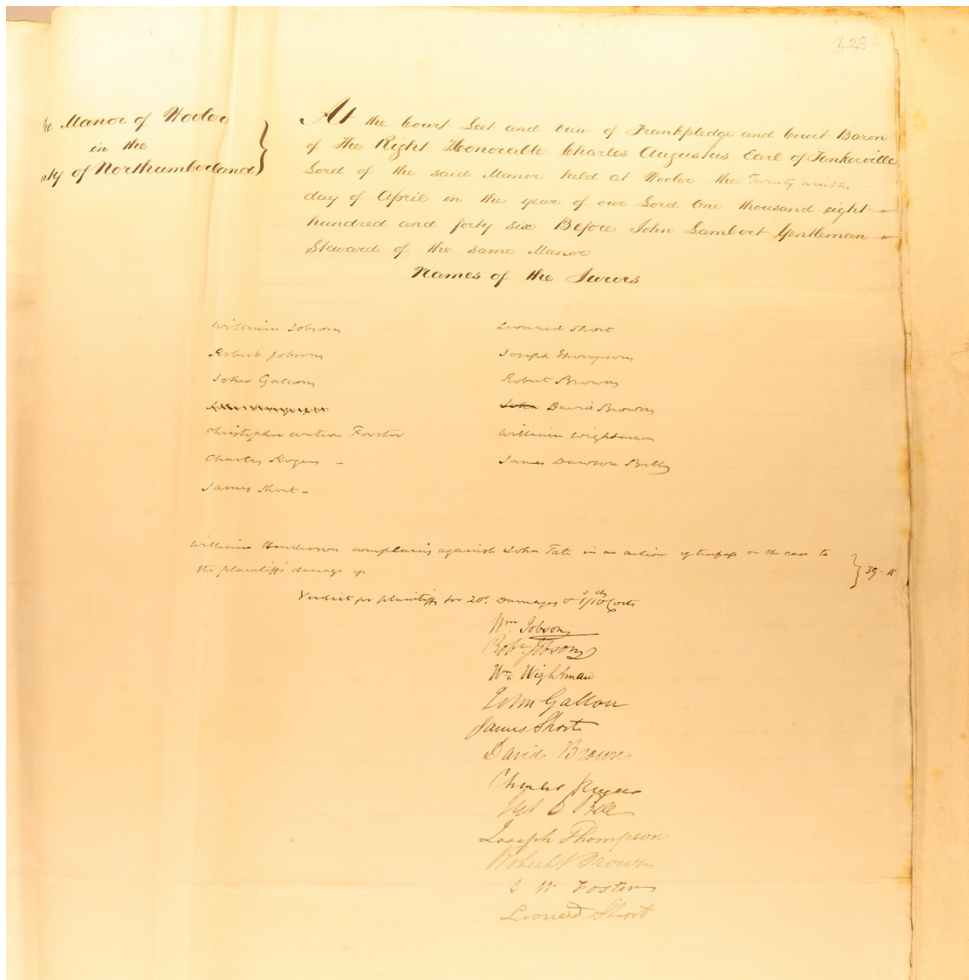 423
Manor of Wooler
in the
nty of Northumberland
At the Court Leet and view of Frankpledge and Court Baron
of The Right Honorable Charles Augustus Earl of Tankerville
Lord of the said Manor held at Wooler the Twenty ninth
day of April in the year of our Lord One thousand eight
hundred and forty six Before John Lambert Gentleman
Steward of the same Manor
Names of the Jurors
William Jobson
Robert Jobson
John Gallon
Christopher Watson Forster
Charles Rogers
James Short
Leonard Short
Joseph Thompson
Robert Brown
John David Brown
William Wightman
James Dawson Bell
William Henderson complains against John Tate in an action of trespass on the case to
the plaintiff's damage of 39
Verdict for plaintiff for 20s. Damages & Costs
Wm Jobson
Robt Jobson
Wm Wightman
John Gallon
James Short
David Brown
Charles Rogers
D Bell
Joseph Thompson
Robert Brown
W Foster
Leonard Short